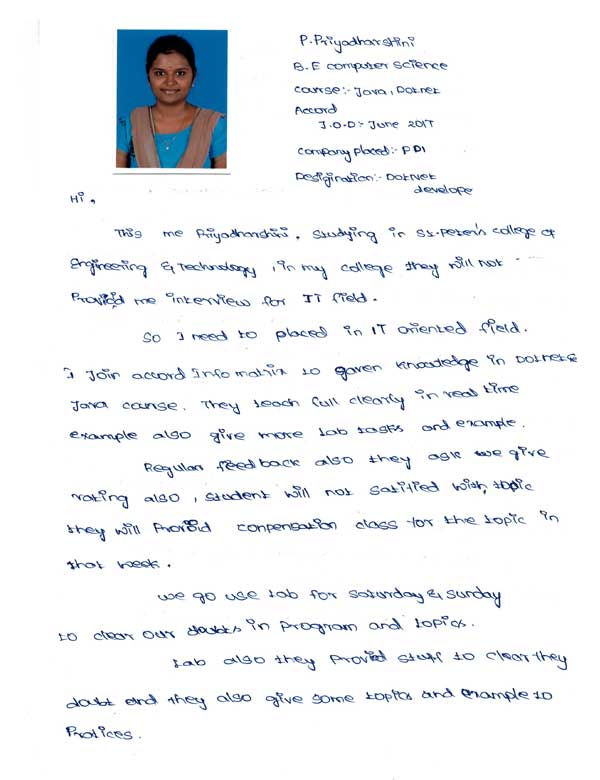 P. Priyadharshini
B.E computer science
course:- Java, Dotnet
Accord
J.O.D:- June 2017
company placed:- PDI
Desigination:- DotNet
develope
Hi,
This me Priyadharshini, studying in St.Peter's college of
Engineering & Technology, in my college they will not
Provied me interview for IT field.
So I need to placed in IT oriented field.
I Join accord Info matrix to gaven knowledge in Dotnet &
Java cause. They teach full clearly in real time
example also give more lab tasks and example.
Regular feedback also they ask we give
rating also, student will not satified with topic
they will Provid conpensation class for the topic in
that week.
we go use lab for saturday & sunday
to clear our doubts in program and topics.
Lab also they provied stuff to clear they
doubt and they also give some topics and example to
Pratices.